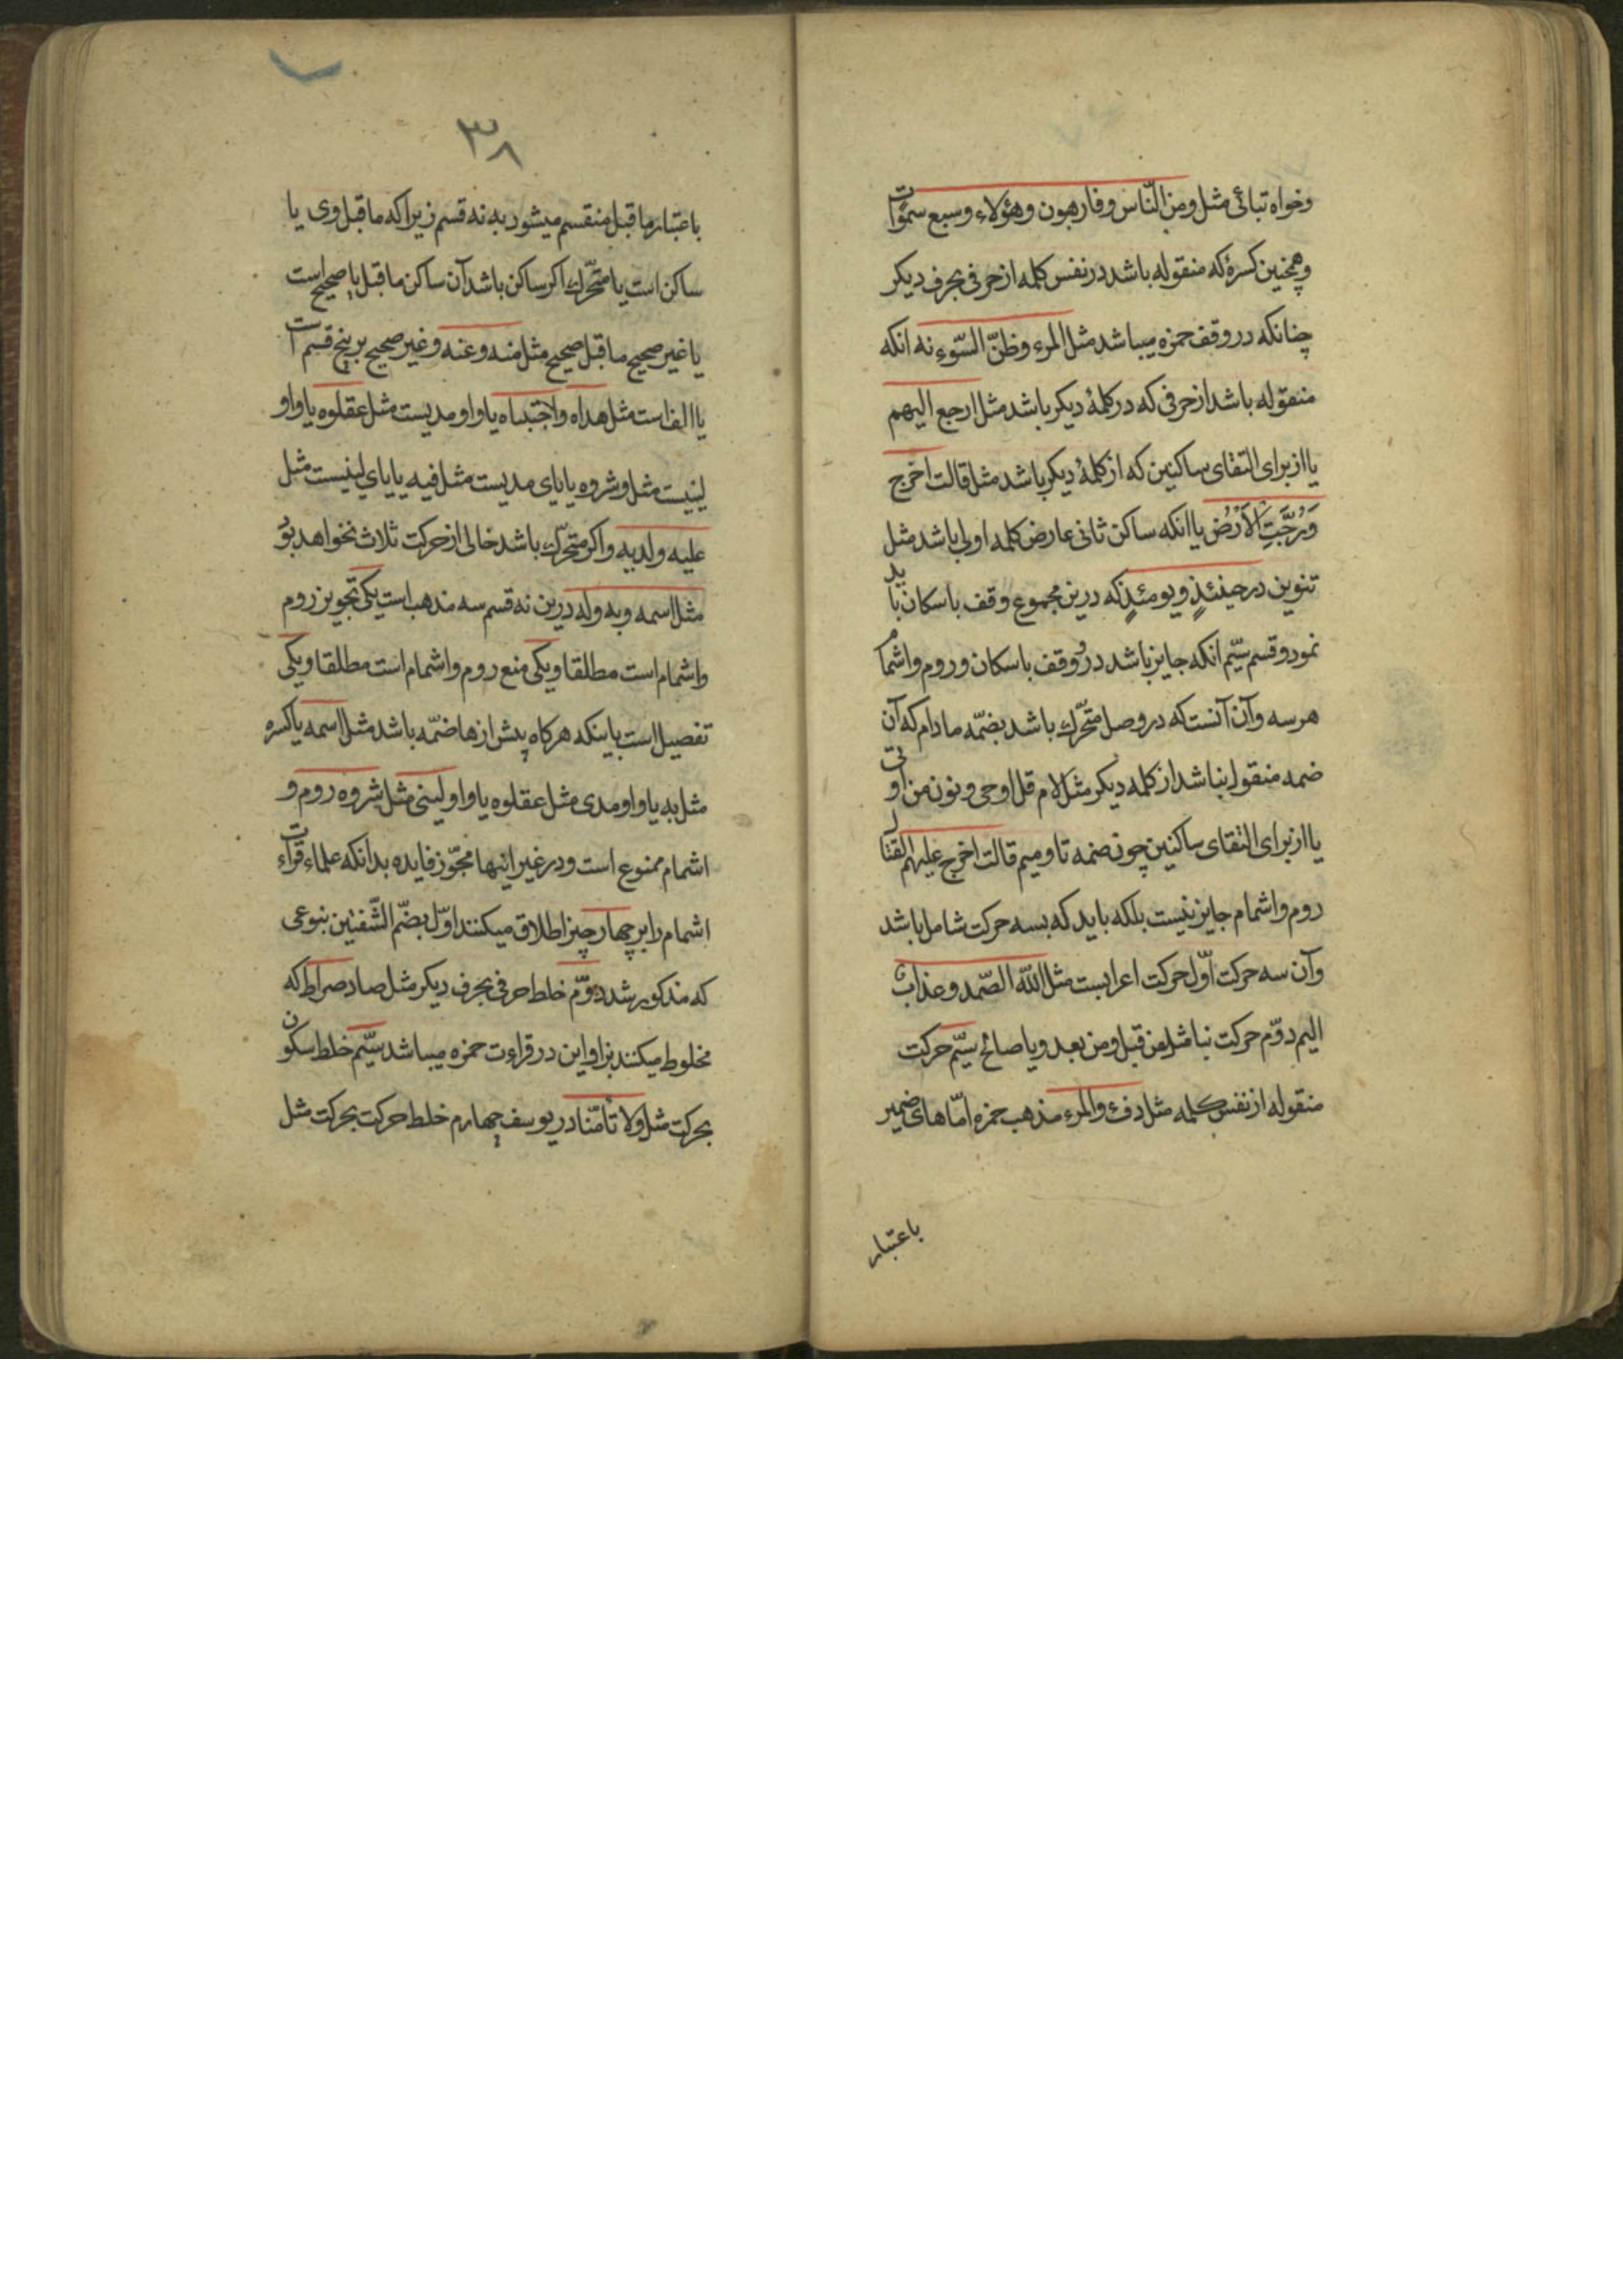 وخواه تبائی مثل ومن النّاس وفارهبون وهؤلاء وسبع سموات
وهمچنین کسرهٔ که منقوله باشد در نفس کلمه از حرفی بحرف دیکر
چنانکه در وقف حمزه میباشد مثل المرء وظنّ السّوء نه انکه
منقوله باشد از حرفی که در کلمهٔ دیکر باشد مثل ارجع الیهم
یا از برای التقای ساکنین که از کلمهٔ دیکر باشد مثل قالت اخرج
وَرُجَّتِ الْاَرْض یا انکه ساکن ثانی عارض کلمه اولی باشد مثل
تنوین در حینئذٍ ویومئذٍ که درین مجموع وقف باسکان باید
نمود وقسم سیّم انکه جایز باشد درو وقف باسکان وروم واشمام
هر سه وآن آنست که در وصل متحّرک باشد بضمّه مادام که آن
ضمه منقوله نباشد از کلمه دیکر مثل لام قل اوحی ونون من اوتی
یا از برای التقای ساکنین چون ضمه تا ومیم قالت اخرج علیهم القتال
روم واشمام جایز نیست بلکه باید که بسه حرکت شامل باشد
وآن سه حرکت اوّل حرکت اعرابست مثل اللّه الصّمد وعذابٌ
الیم دوّم حرکت بنا مثل من قبل ومن بعد ویا صالح سیّم حرکت
منقوله از نفس کلمه مثل دفء والمرء مذهب حمزه امّا های ضمیر
باعتبار
٣٨
باعتبار ما قبل منقسم میشود به نه قسم زیرا که ما قبل وی یا
ساکن است یا متحّرک اکر ساکن باشد آن ساکن ما قبل یا صحیح است
یا غیر صحیح ما قبل صحیح مثل منه وعنه وغیر صحیح بر پنج قسم است
یا الف است مثل هداه واجتباه یا واو مدیست مثل عقلوه یا واو
لینیست مثل وشروه یا یای مدیست مثل فیه یا یای لینیست مثل
علیه ولدیه واکر متحّرک باشد خالی از حرکت ثلاث نخواهد بود
مثل اسمه وبه وله درین نه قسم سه مذهب است یکی تجویز روم
واشمام است مطلقا ویکی منع روم واشمام است مطلقا ویکی
تفصیل است باینکه هرکاه پیش از ها ضمّه باشد مثل اسمه یا کسره
مثل به یا واو مدی مثل عقلوه یا واو لینی مثل شروه روم و
اشمام ممنوع است ودر غیر اینها مجوّز فایده بدانکه علماء قرآءت
اشمام را بر چهار چیز اطلاق میکنند اوّل بضّم الشّفتین بنوعی
که مذکور شد دوّم خلط حرفی بحرف دیکر مثل صاد صراط که
مخلوط میکنند بزا واین در قراءت حمزه میباشد سیّم خلط سکون
بحرکت مثل ولا تأمنّا در یوسف چهارم خلط حرکت بحرکت مثل